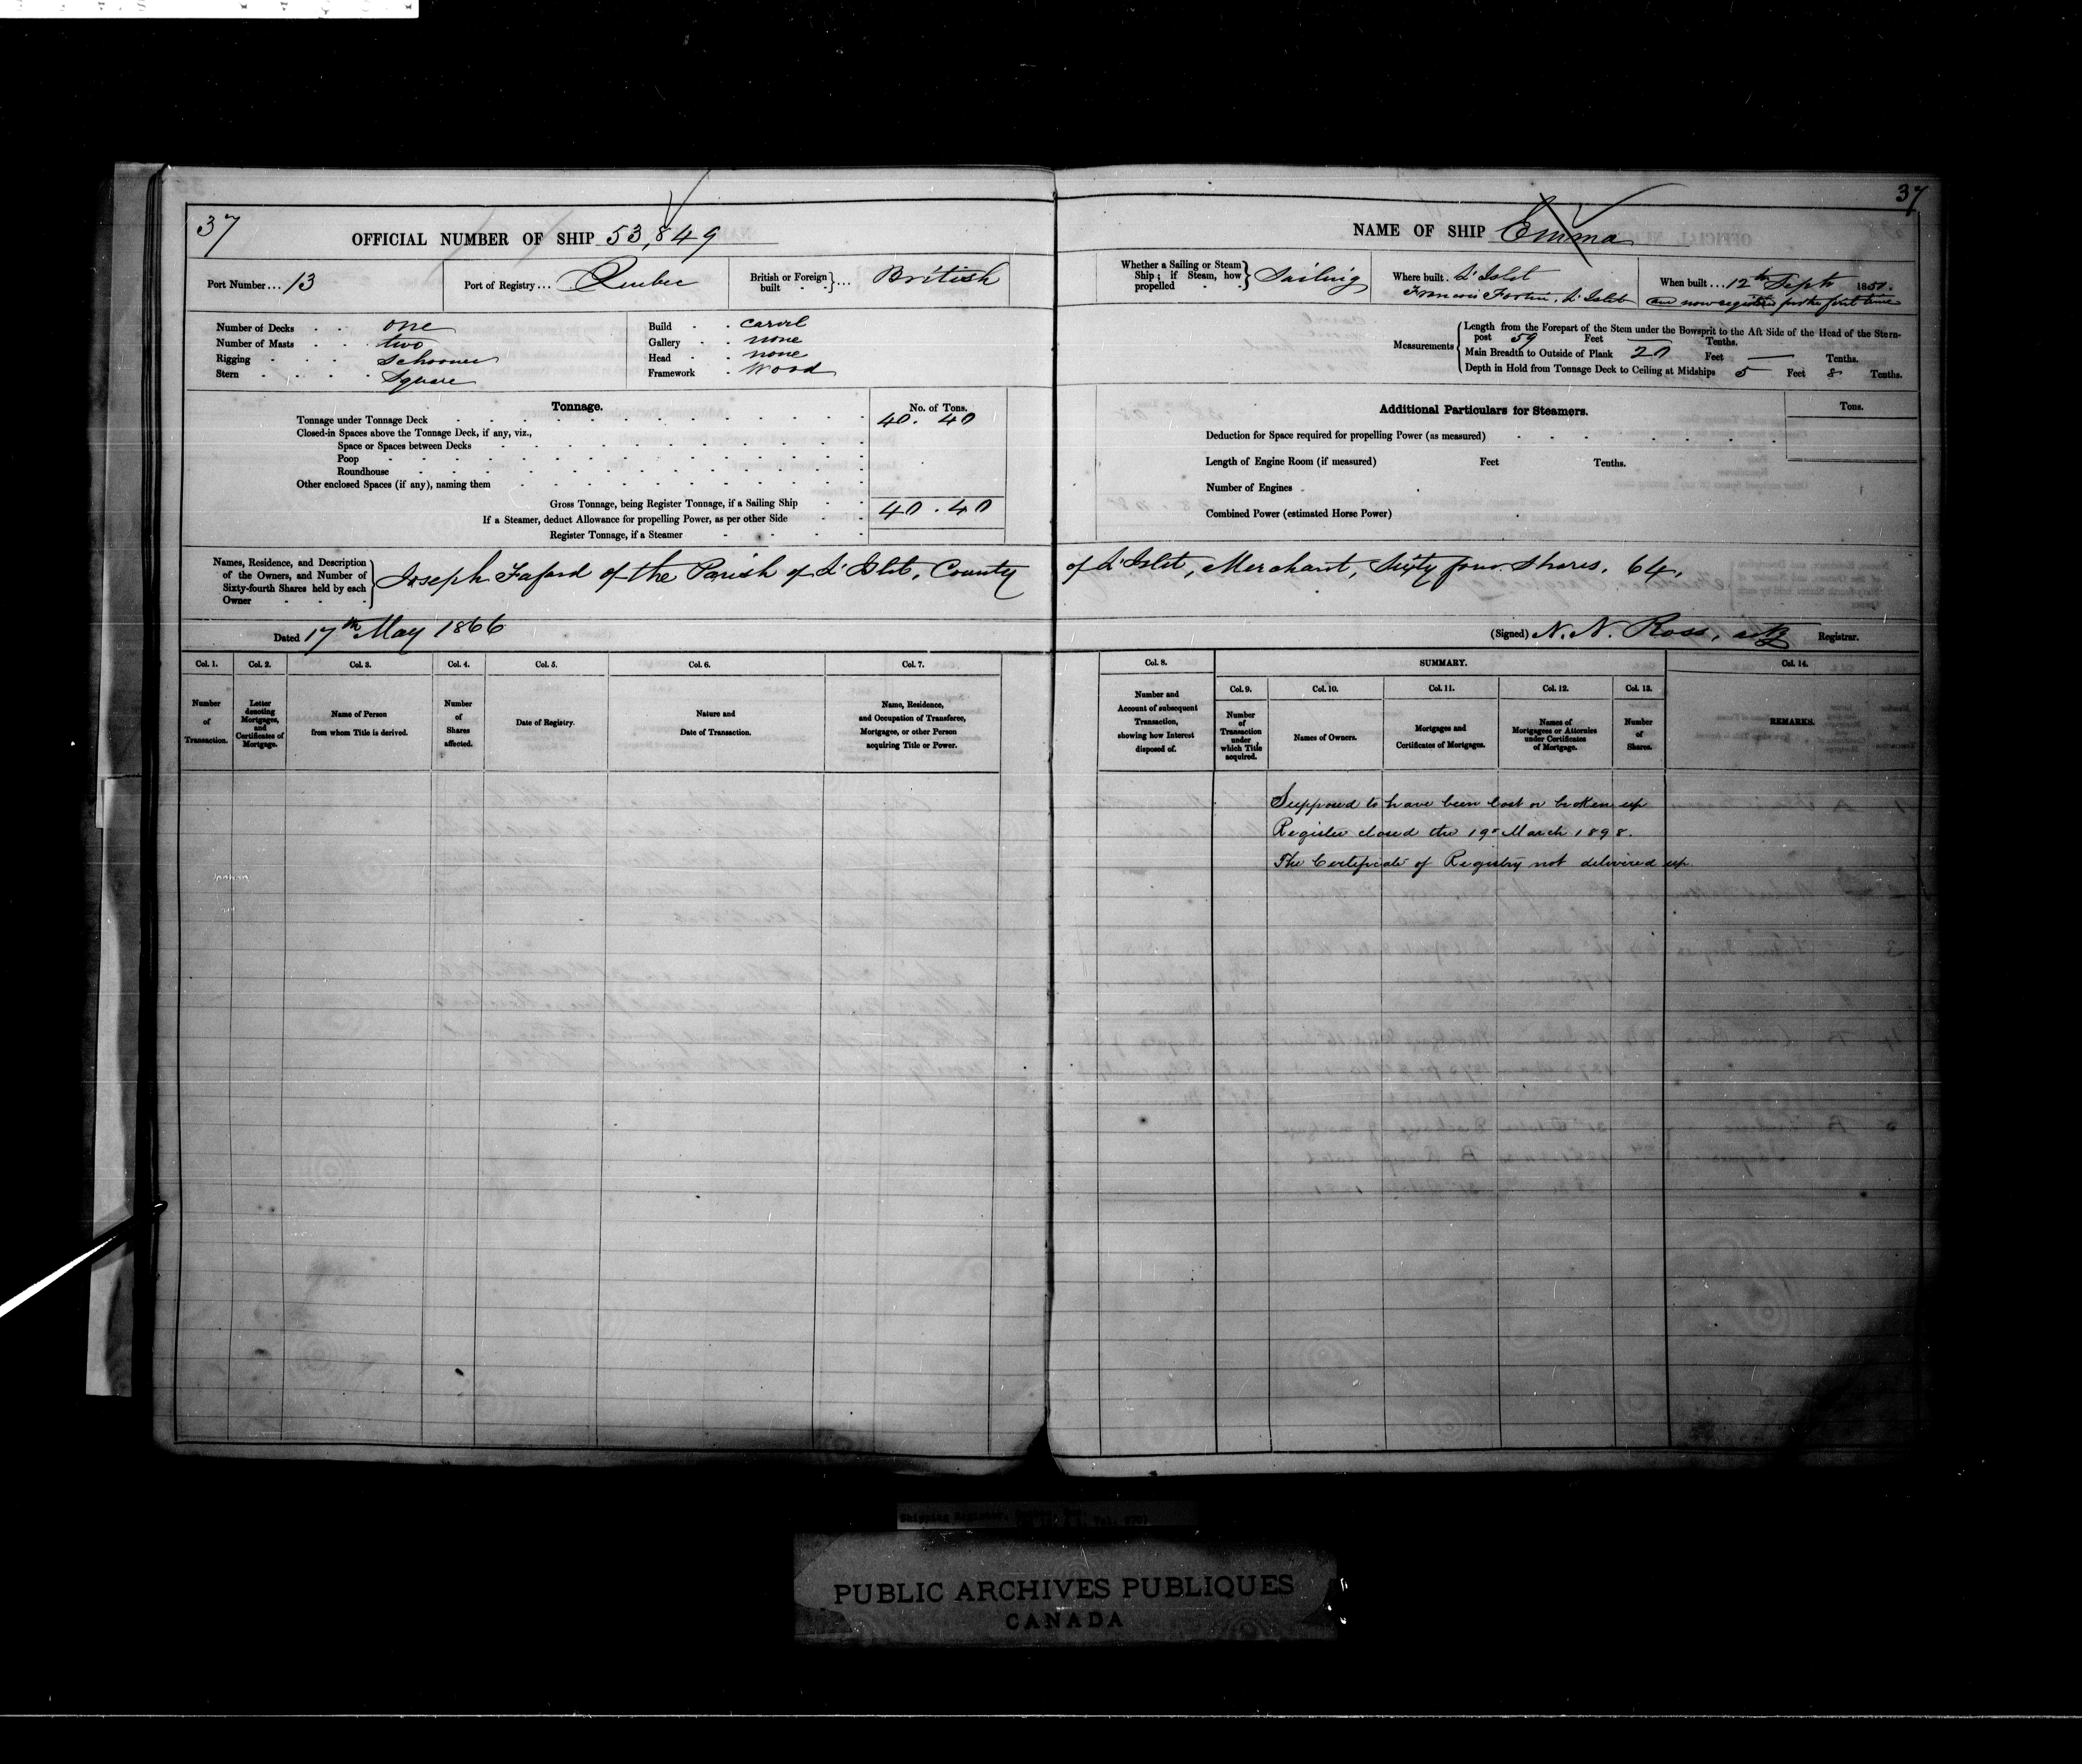 37
37
OFFICIAL NUMBER OF SHIP 53,849
NAME OF SHIP Emma
Port Number... 13
Port of Registry... Quebec
British or Foreign built - -}... British
Whether a Sailing or Steam Ship; if Steam, how propelled - -} Sailing
Where built. L'Islet
Francois Fortin, L'Islet
When built... 12th Sept 1851.
and now registered for the first time
Number of Decks . . . one
Number of Masts . . . two
Rigging . . . . Schooner
Stern . . . . Square
Build - . carvel
Gallery - . none
Head - . none
Framework . Wood
Measurements
Length from the Forepart of the Stem under the Bowsprit to the Aft Side of the Head of the Stern-
post 59 Feet — Tenths.
Main Breadth to Outside of Plank 20 Feet — Tenths.
Depth in Hold from Tonnage Deck to Ceiling at Midships 5 Feet 8 Tenths.
Tonnage.
No. of Tons.
Tonnage under Tonnage Deck 40. 40
Closed-in Spaces above the Tonnage Deck, if any, viz.,
Space or Spaces between Decks
Poop
Roundhouse
Other enclosed Spaces (if any), naming them
Gross Tonnage, being Register Tonnage, if a Sailing Ship 40 . 40
If a Steamer, deduct Allowance for propelling Power, as per other Side
Register Tonnage, if a Steamer
Additional Particulars for Steamers.
Tons.
Deduction for Space required for propelling Power (as measured)
Length of Engine Room (if measured) Feet Tenths.
Number of Engines
Combined Power (estimated Horse Power)
Names, Residence, and Description
of the Owners, and Number of
Sixty-fourth Shares held by each
Owner
Joseph Fafard of the Parish of L'Islet, County of L'Islet, Merchant, Sixty four Shares. 64,
Dated 17th May 1866
(Signed) N. N. Ross, actg Registrar.
Col. 1.
Number of Transaction.
Col. 2.
Letter denoting Mortgages, and Certificates of Mortgage.
Col. 3.
Name of Person from whom Title is derived.
Col. 4.
Number of Shares affected.
Col. 5.
Date of Registry.
Col. 6.
Nature and Date of Transaction.
Col. 7.
Name, Residence, and Occupation of Transferee, Mortgagee, or other Person acquiring Title or Power.
Col. 8.
Number and Account of subsequent Transaction, showing how Interest disposed of.
SUMMARY.
Col. 9.
Number of Transaction under which Title acquired.
Col. 10.
Names of Owners.
Col. 11.
Mortgages and Certificates of Mortgages.
Col. 12.
Names of Mortgagees or Attornies under Certificates of Mortgage.
Col. 13.
Number of Shares.
Col. 14.
REMARKS.
Supposed to have been lost or broken up
Register closed the 19th March 1898.
The Certificate of Registry not delivered up.
Shipping Register,
PUBLIC ARCHIVES PUBLIQUES
CANADA